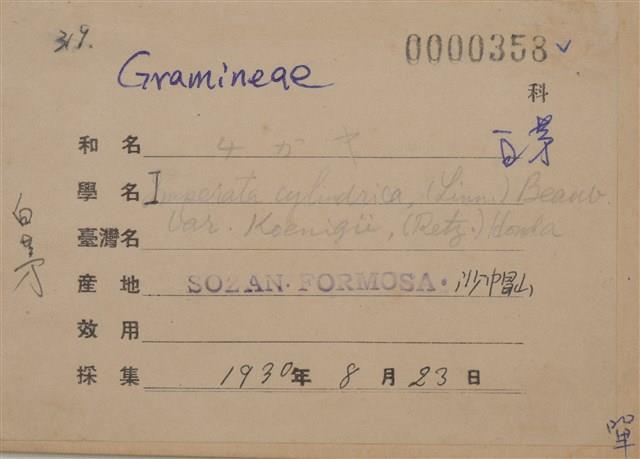 319.
0000358
Gramineae
科
和名 チガヤ 白茅
學名 Imperata cylindrica, (Linn.) Beauv.
臺灣名 Var. Koenigii, (Retz.) Honda
產地 SOZAN. FORMOSA. 沙帽山
效用
採集 1930年 8月23日
白茅
單